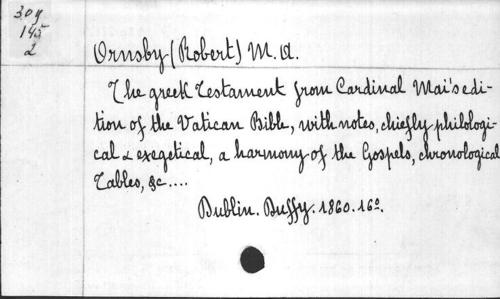 30y
145
2
Ornsby (Robert) M. A.
The greek Testament from Cardinal Mai's edi-
tion of the Vatican Bible, with notes, chiefly philologi-
cal & exegetical, a harmony of the Gospels, chronological
Tables, &c....
Dublin. Duffy. 1860. 16º.